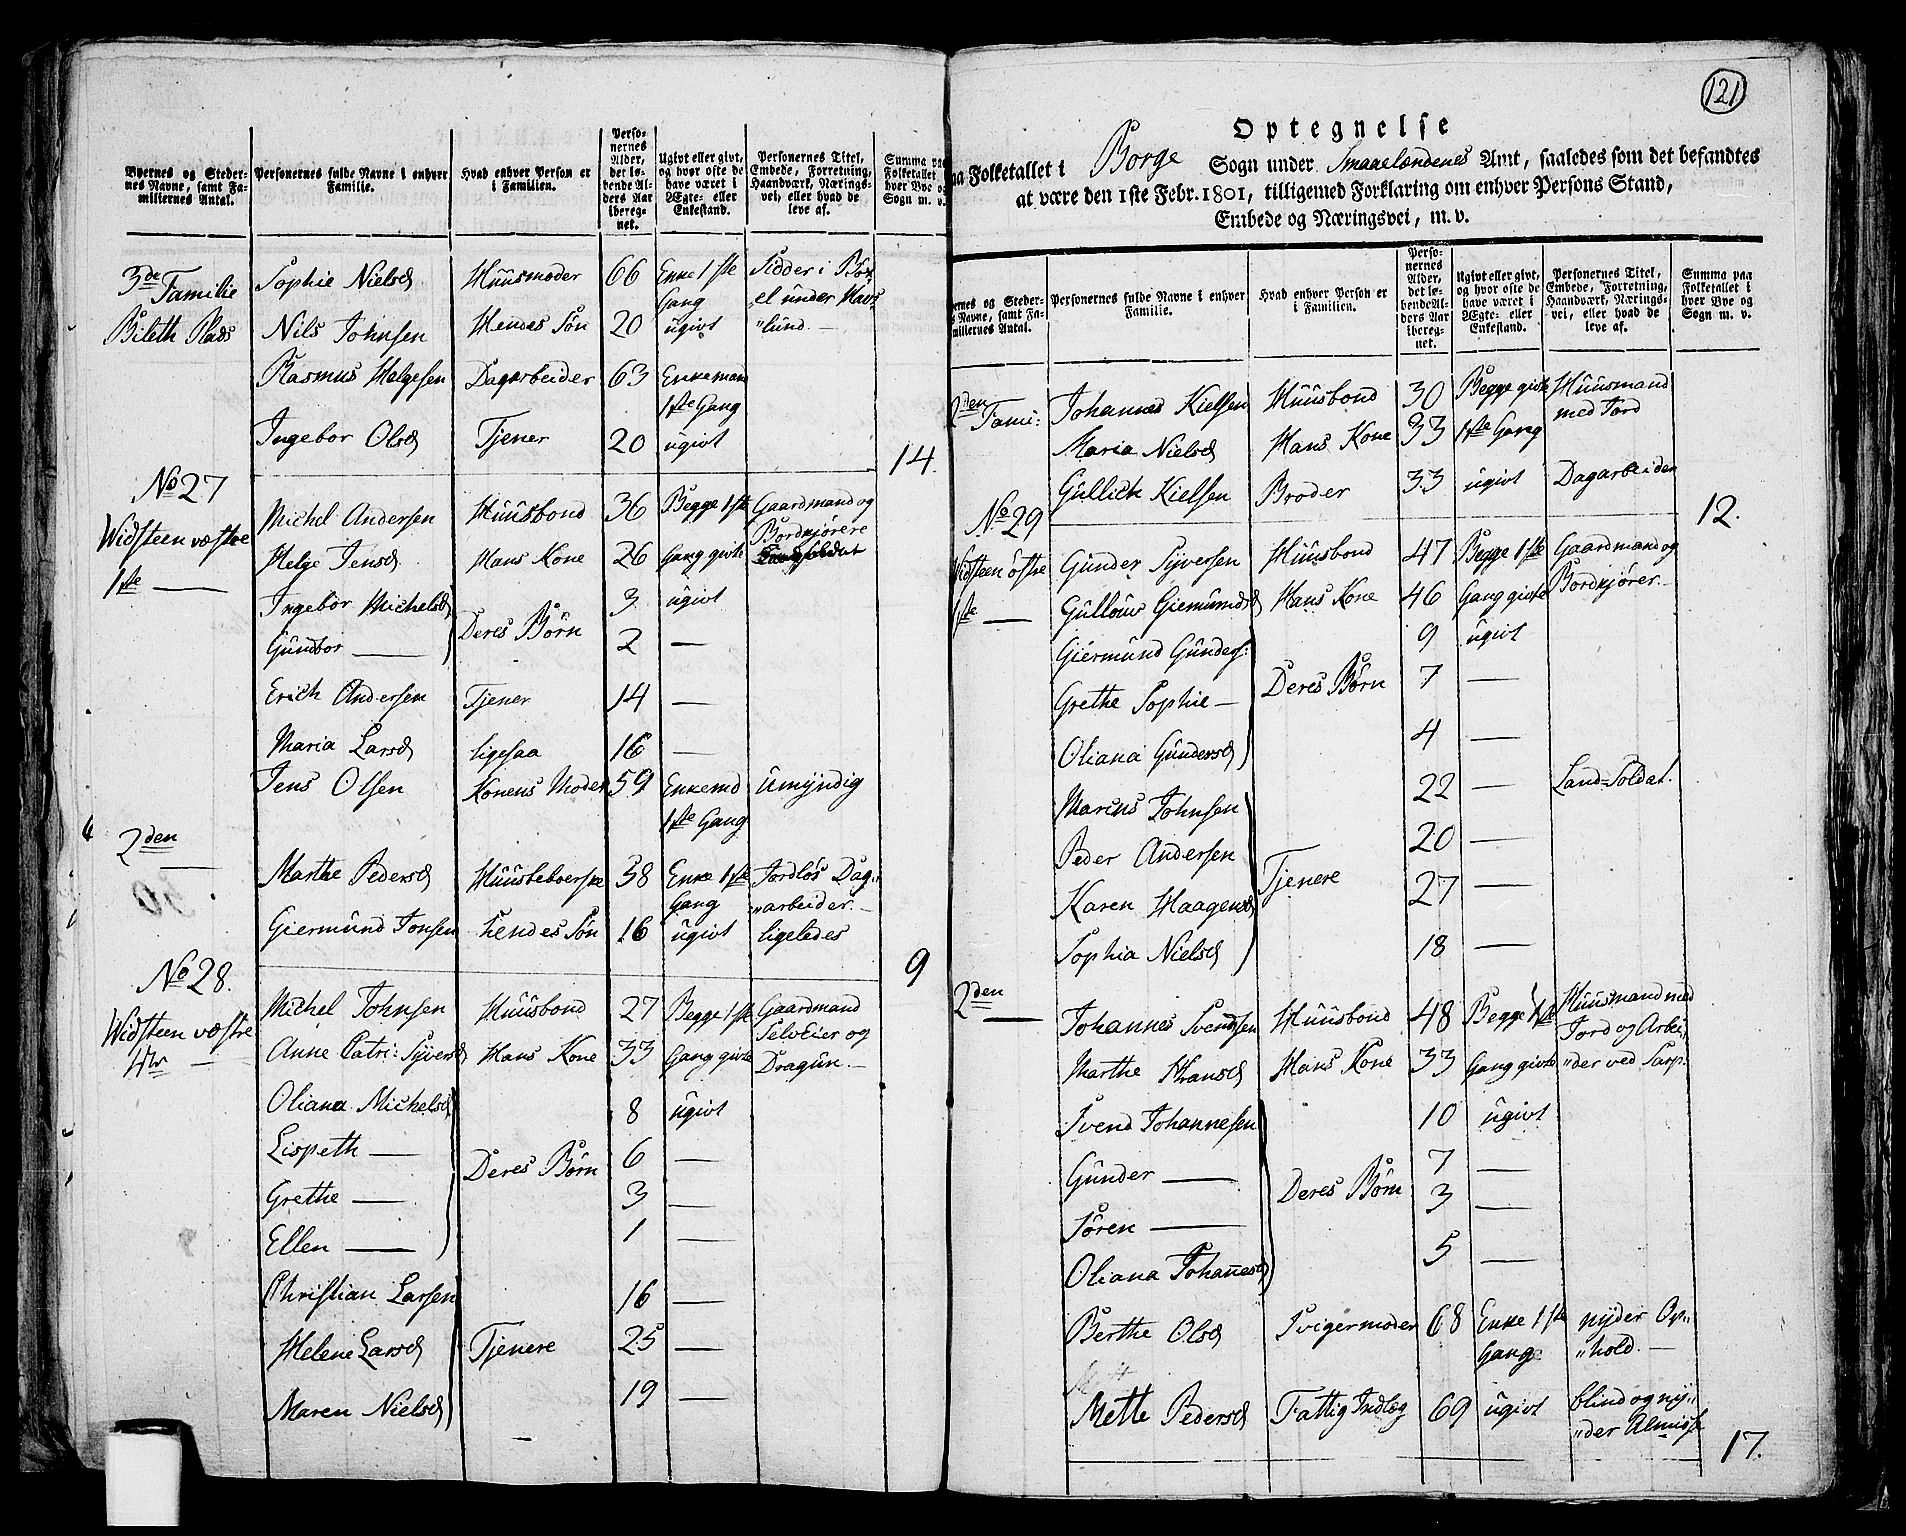 Byernes og Steder-
nes Navne, samt Fa-
miliernes Antal.
Personernes fulde Navne i enhver
Familie.
Hvad enhver Person er
i Familien.
Perso-
nernes
Alder,
det lø-
bende Al-
ders Aar
ibereg-
net.
Ugivt eller givt,
og hvor ofte de
have været i
Ægte- eller
Enkestand.
Personernes Titel,
Embede, Forretning,
Haandværk, Nærings-
vei, eller hvad de
leve af.
Summa paa
Folketallet i
hver Bye og
Sogn m. v.
3de Familie Sophie Nielsd Huusmoder 66 Enke 1ste Gang Sidder i Bøx-
el under Havs
"lund.
Bileth Plads Nils Johnsen Hendes Søn 20 ugivt
Rasmus Helgesen Dagarbeider 63 Enkeman 1ste Gang
Ingebor Olsd Tjener 20 ugivt
14.
No 27
Widsteen væstre
1ste —
Michel Andersen Huusbond 36 Begge 1ste Gaardmand og
Bordkjørere
Helge Jensd Hans Kone 26 Gang givte
Ingebor Michelsd 3 ugivt
Deres Børn
Gundbor — 2 —
Erich Andersen Tjener 14 —
Maria Larsd ligesaa 16 —
Jens Olsen Konens Moder 59 Enkemd 1ste Gang Umyndig
2den
Marthe Pedersd Huusbeboerske 58 Enke 1ste Gang Jordløs Dag-
"arbeider.
Giermund Jonsen hendes Søn 16 ugivt ligeledes
9
No 28.
Widsteen væstre
Michel Johnsen Huusbond 27 Begge 1ste Gaardmand
SelvEier og
Anne Catri: Syversd Hans Kone 33 Gang givte Dragun.
Oliana Michelsd 8 ugivt
Lispeth — 6 —
Deres Børn
Grethe — 3 —
Ellen — 1 —
Christian Larsen 16 —
Helene Larsd Tjenere 25 —
Maren Nielsd 19 —
121
Optegnelse
paa Folketallet i Borge Sogn under Smaalændenes Amt, saaledes som det befandtes
at være den 1ste Febr. 1801, tilligemed Forklaring om enhver Persons Stand,
Embede og Næringsvei, m. v.
ernes og Steder-
s Navne, samt Fa-
miliernes Antal.
Personernes fulde Navne i enhver
Familie.
Hvad enhver Person er
i Familien.
Perso-
nernes
Alder,
det lø-
bende Al-
ders Aar
ibereg-
net.
Ugivt eller givt,
og hvor ofte de
have været i
Ægte- eller
Enkestand.
Personernes Titel,
Embede, Forretning,
Haandværk, Nærings-
vei, eller hvad de
leve af.
Summa paa
Folketallet i
hver Bye og
Sogn m. v.
2den Fami: Johannes Kielsen Huusbond 30 Begge givte Huusmand
med Jord
Maria Nielsd Hans Kone 33 1ste Gang
Gullich Kielsen Broder 33 ugivt Dagarbeider
12.
No 29
Widsteen östre
1ste —
Gunder Syversen Huusbond 47 Begge 1ste Gaardmand og
Gullouv Giemundsd Hans Kone 46 Gang givte Bordkjører
Giermund Gunders: 9 ugivt
Grethe Sophie — Deres Børn 7 —
Oliana Gundersd 4 —
Marius Johnsen 22 — Land-Soldat.
Peder Andersen 20 —
Tjenere
Karen Haagensd 27 —
Sophia Nielsd 18 —
2den
Johannes Svendsen Huusbond 48 Begge 1ste Huusmand med
Jord og Arbei-
Marthe Hansd Hans Kone 33 Gang givte "der ved Sarp:
Svend Johannesen 10 ugivt
Gunder — 7 —
Deres Børn
Sören — 3 —
Oliana Johanesd 5 —
Berthe Olsd Svigermoder 68 Enke 1ste Gang nyder Op-
"hold.
Mette Pedersd Fattig Indlæg 69 ugivt blind og ny-
"der Almisse
17.